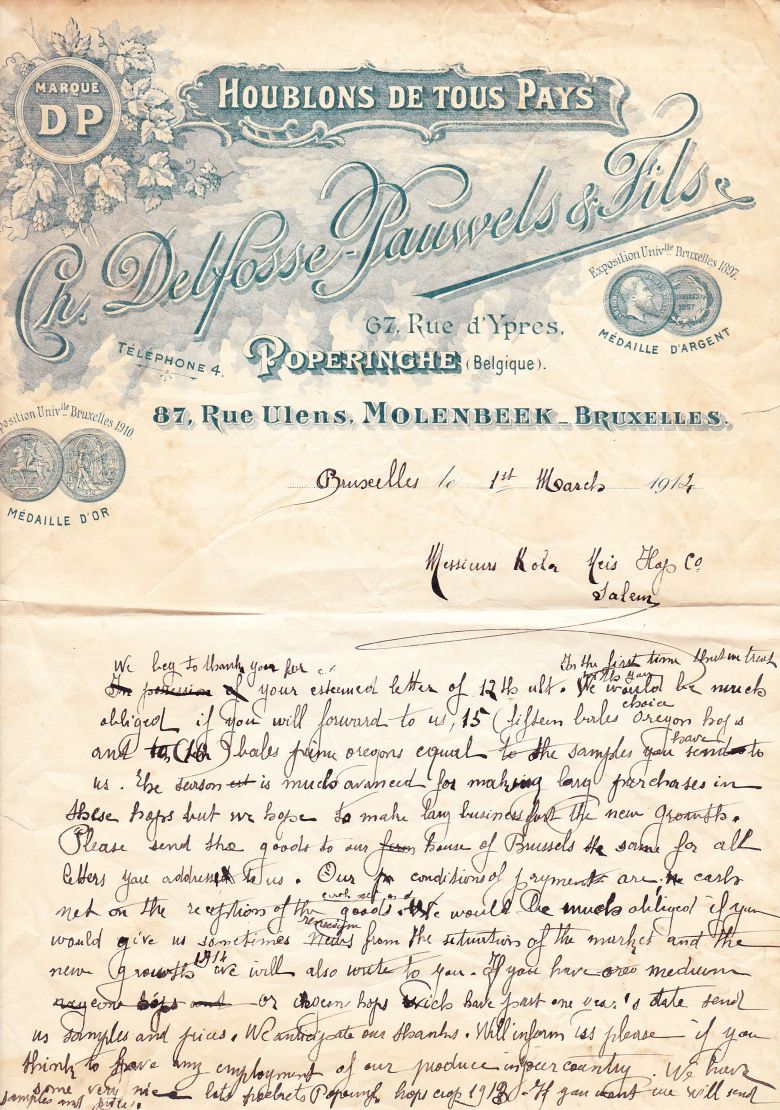 MARQUE
DP
HOUBLONS DE TOUS PAYS
Ch. Delfosse-Pauwels & Fils.
Exposition Univlle Bruxelles 1897.
BRUXELLES
1897
MÉDAILLE D'ARGENT
67, Rue d'Ypres,
TÉLÉPHONE 4.
POPERINGHE (Belgique).
87, Rue Ulens, MOLENBEEK_BRUXELLES.
position Univlle Bruxelles 1910
MÉDAILLE D'OR
Bruxelles le 1st March 1914
Messieurs Kola Neis Hop Co
Salem
We beg to thank you for In the first time
In possession of your esteemed letter of 12th ult. We would be much
choice
obliged if you will forward to us, 15 (fifteen bales Oregon hops
have
and bales prime oregons equal to the samples you send to
us. The season is much avanced for making larg purchases in
these hops but we hope to make larg business for the new growth.
Please send the goods to our house of Brussels the same for all
letters you address to us. Our conditions of payment are: cash
net on the reception of the goods. We would be much obliged if you
would give us sometimes news from the situation of the market and the
1914
new growth we will also write to you. If you have medium
hops or hops wich have past one year's date send
us samples and prices. We anticipate our thanks. Will inform us please if you
think to have any employment of our produce in your country. We have
some very nice lots hops crop 1913. If you want we will send
samples and prices.